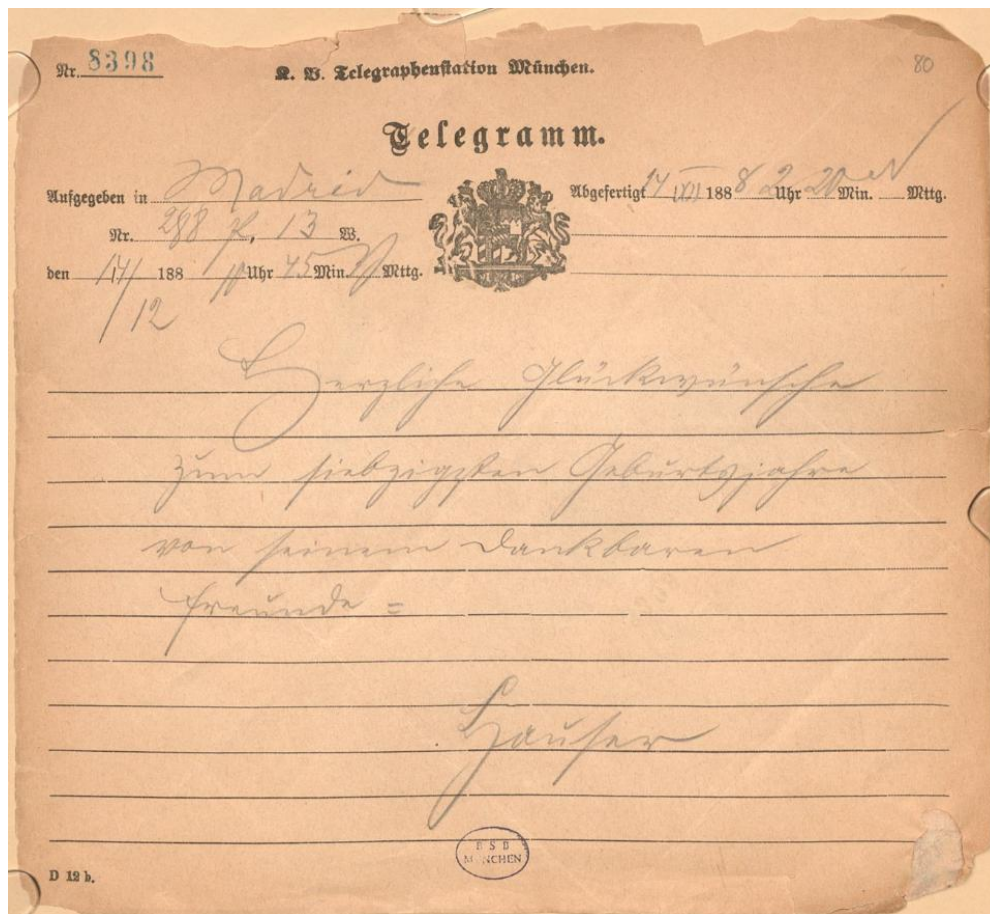 Nr. 8398
K. B. Telegraphenstation München.
80
Telegramm.
Aufgegeben in Madrid
Abgefertigt 14/XII 1888 2 Uhr 20 Min. Mttg.
Nr. 288 13 W.
den 14/12 188 Uhr 45 Min. Mttg.
Herzliche Glückwünsche
zum siebzigsten Geburtsjahre
von seinem dankbaren
Freunde =
Hauser
BSB
MÜNCHEN
D 12 b.